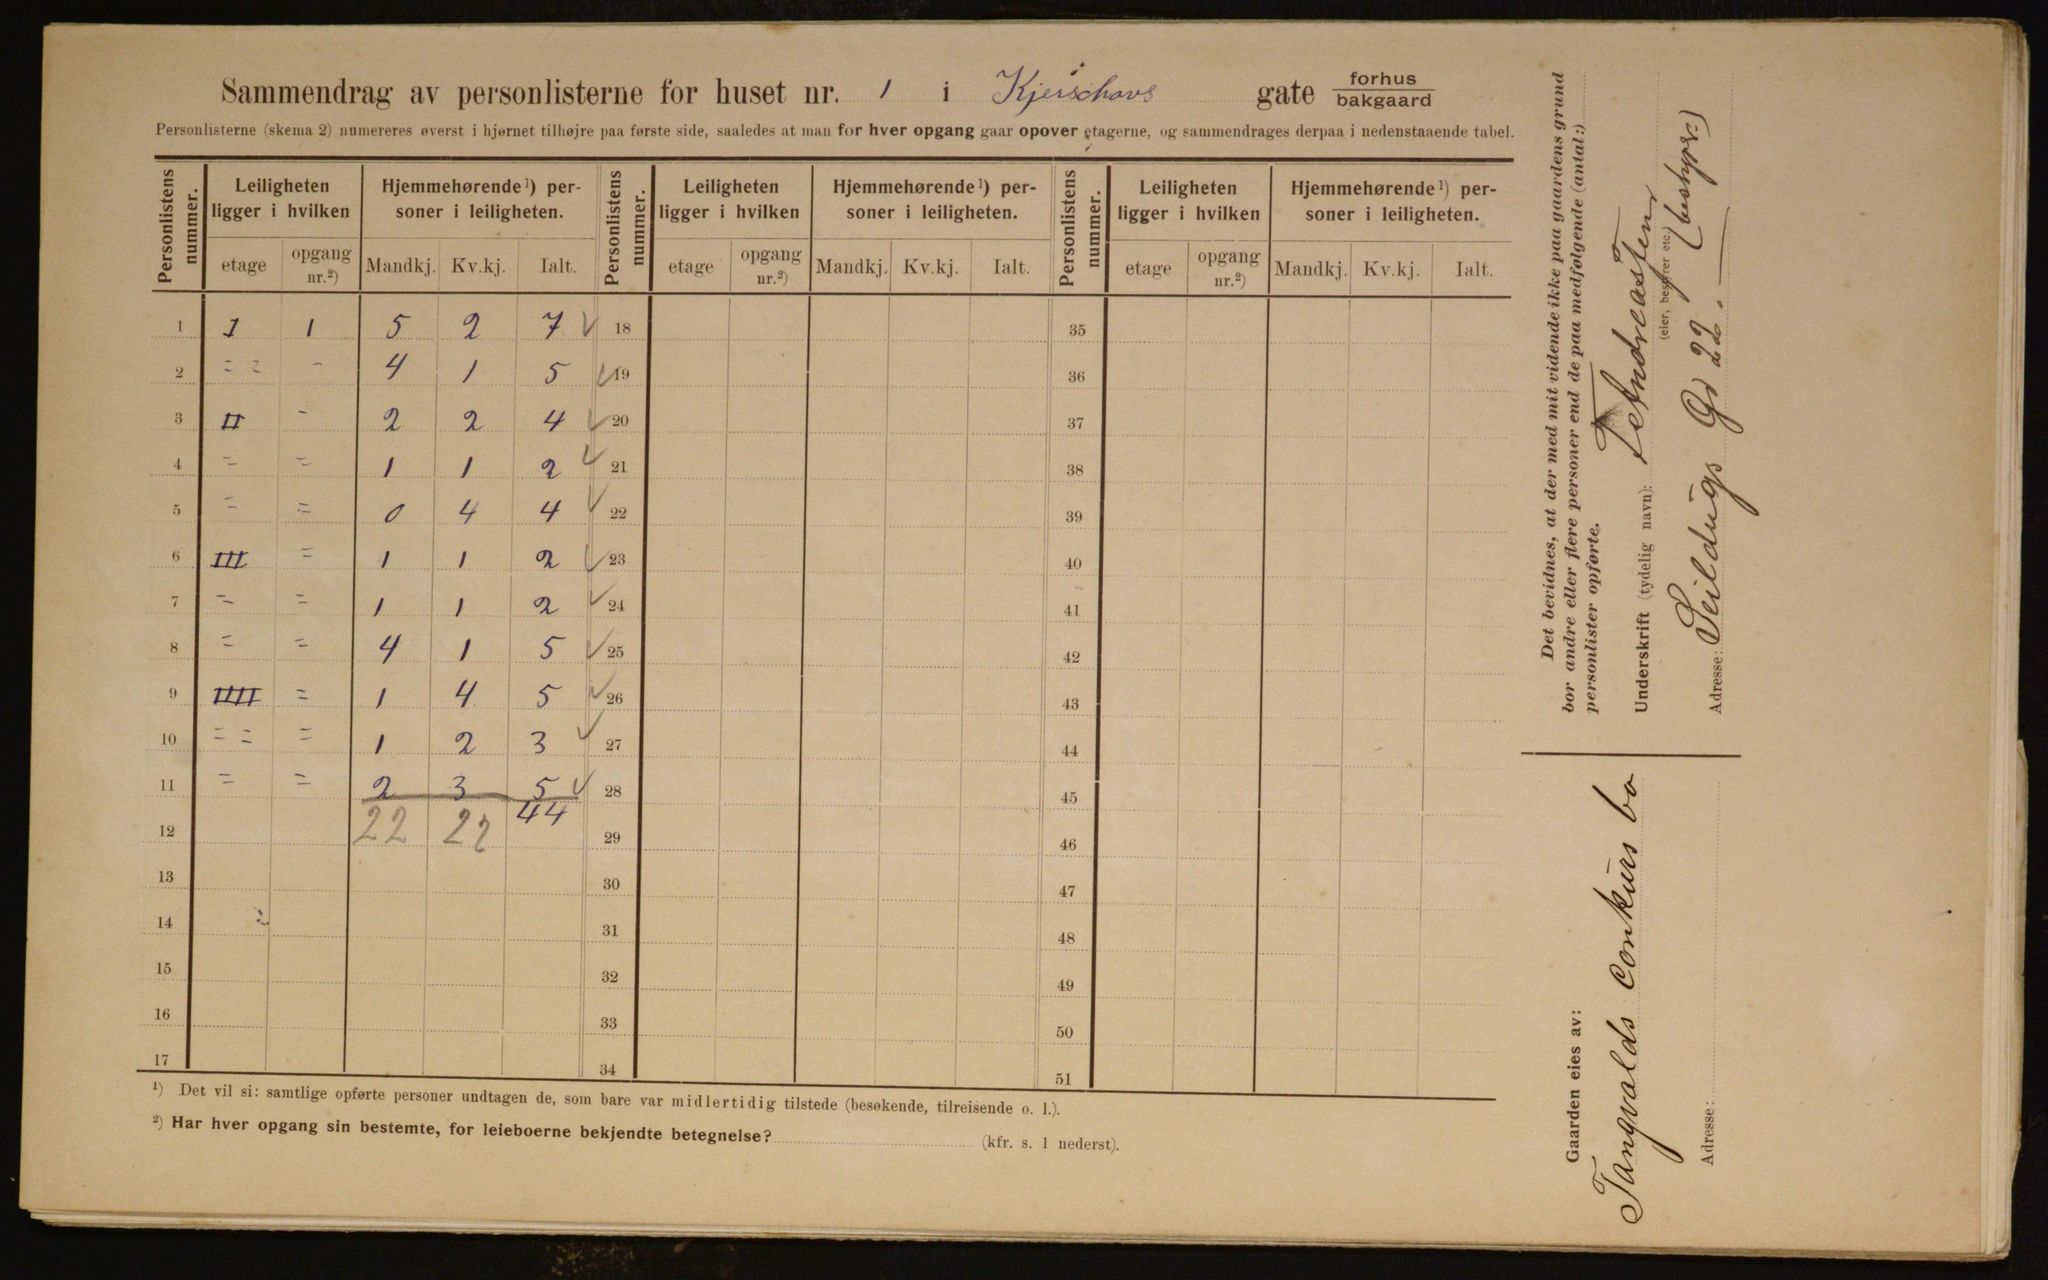 Sammendrag av personlisterne for huset nr. 1 i Kjerschovs gate forhus bakgaard
Personlisterne (skema 2) numereres øverst i hjørnet tilhøjre paa første side, saaledes at man for hver opgang gaar opover etagerne, og sammendrages derpaa i nedenstaaende tabel.
Personlistens nummer. Leiligheten ligger i hvilken Hjemmehørende ¹) personer i leiligheten. Personlistens nummer. Leiligheten ligger i hvilken Hjemmehørende ¹) personer i leiligheten. Personlistens nummer. Leiligheten ligger i hvilken Hjemmehørende ¹) personer i leiligheten.
etage opgang nr.²) Mandkj. Kv.kj. Ialt. etage opgang nr.²) Mandkj. Kv.kj. Ialt. etage opgang nr.²) Mandkj. Kv.kj. Ialt.
1 I 1 5 2 7 ✓ 18 35
2 = = - 4 1 5 ✓ 19 36
3 II - 2 2 4 ✓ 20 37
4 = = 1 1 2 ✓ 21 38
5 = = 0 4 4 ✓ 22 39
6 III = 1 1 2 ✓ 23 40
7 = = 1 1 2 ✓ 24 41
8 = = 4 1 5 ✓ 25 42
9 IIII = 1 4 5 ✓ 26 43
10 = = = 1 2 3 ✓ 27 44
11 = = 2 3 5 ✓ 28 45
12 22 22 44 29 46
13 30 47
14 31 48
15 32 49
16 33 50
17 34 51
¹) Det vil si: samtlige opførte personer undtagen de, som bare var midlertidig tilstede (besøkende, tilreisende o. l.).
²) Har hver opgang sin bestemte, for leieboerne bekjendte betegnelse? (kfr. s. 1 nederst).
Det bevidnes, at der med mit vidende ikke paa gaardens grund
bor andre eller flere personer end de paa medfølgende (antal:)
personlister opførte.
Underskrift (tydelig navn): T Andreasten (bestyrer)
(eier, bestyrer etc.)
Adresse: Seildugs Gd 22.
Gaarden eies av:
Tangvalds conkurs bo
Adresse: